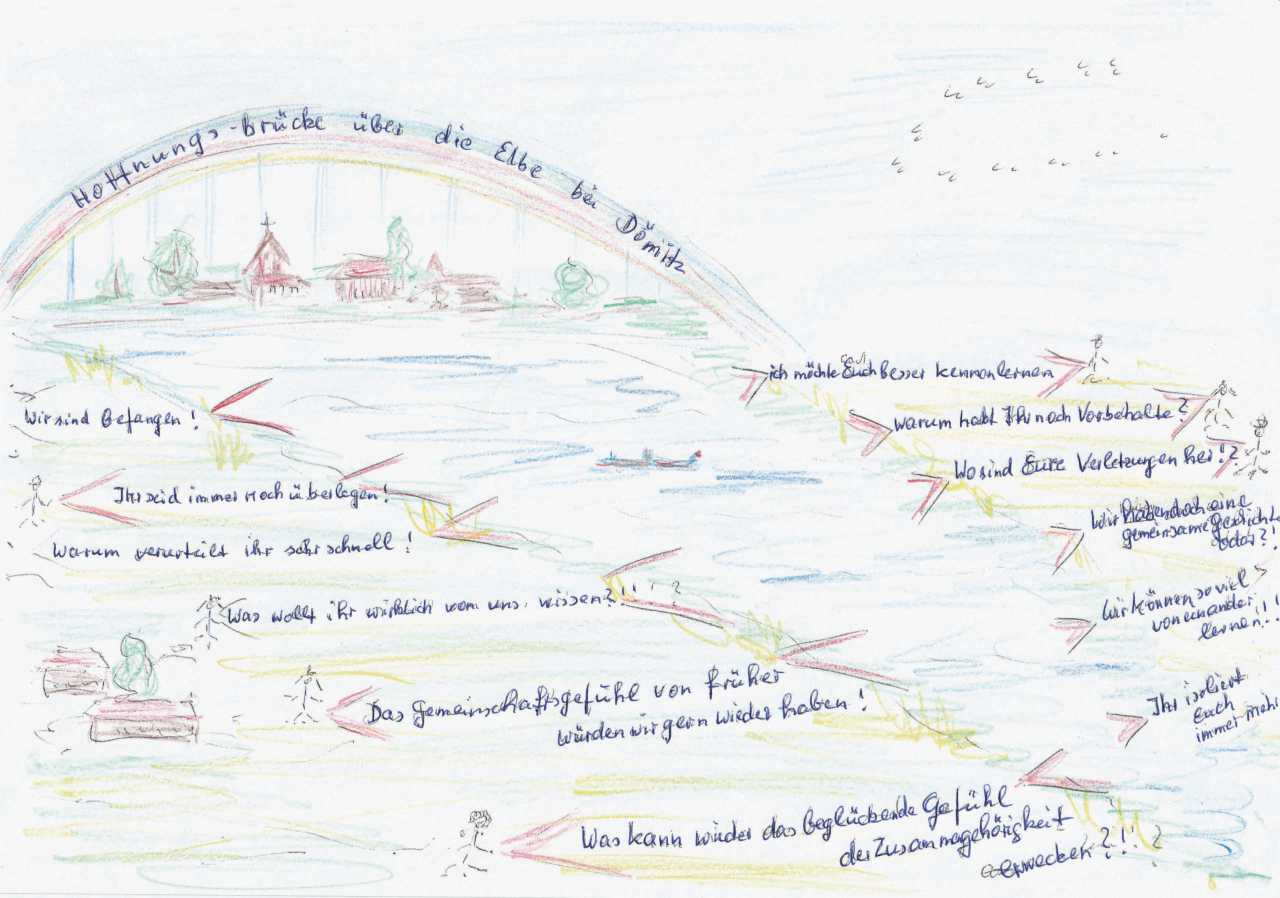 Hoffnungs-brücke über die Elbe bei Dömitz
ich möchte Euch besser kennenlernen
Wir sind befangen!
warum habt Ihr noch Vorbehalte?
Wo sind Eure Verletzungen her!?
Ihr seid immer noch überlegen!
Wir haben doch eine
gemeinsame Geschichte
oder?!
Warum verurteilt ihr sehr schnell!
Was wollt ihr wirklich vom uns wissen?!!!?
Wir können so viel
voneinander
lernen!!!
Das Gemeinschaftsgefühl von früher
würden wir gern wieder haben!
Ihr isoliert
Euch
immer mehr
Was kann wieder das beglückende Gefühl
der Zusammengehörigkeit
erwecken?!!?